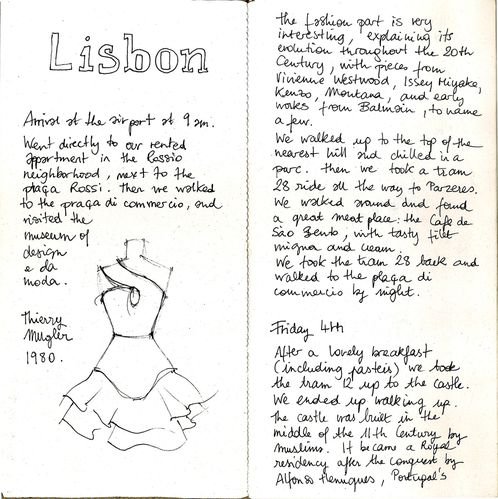 Lisbon
Arrival at the airport at 9 am.
Went directly to our rented
appartment in the Rossio
neighborhood, next to the
plaça Rossi. Then we walked
to the praça di commercio, and
visited the
museum of
design
e da
moda.
Thierry
Mugler
1980.
The fashion part is very
interesting, explaining its
evolution throughout the 20th
Century, with pieces from
Vivienne Westwood, Issey Miyake,
Kenzo, Montana, and early
works from Balmain, to name
a few.
We walked up to the top of the
nearest hill and chilled in a
parc. Then we took a tram
28 ride all the way to Parzeres.
We walked around and found
a great meat place: the Cafe de
São Bento, with tasty filet
mignon and cream.
We took the tram 28 back and
walked to the plaça di
commercio by night.
Friday 4th
After a lovely breakfast
(including pasteis) we took
the tram 12 up to the castle.
We ended up walking up.
The castle was built in the
middle of the 11th Century by
muslims. It became a Royal
residency after the conquest by
Alfonso Henriques, Portugal's